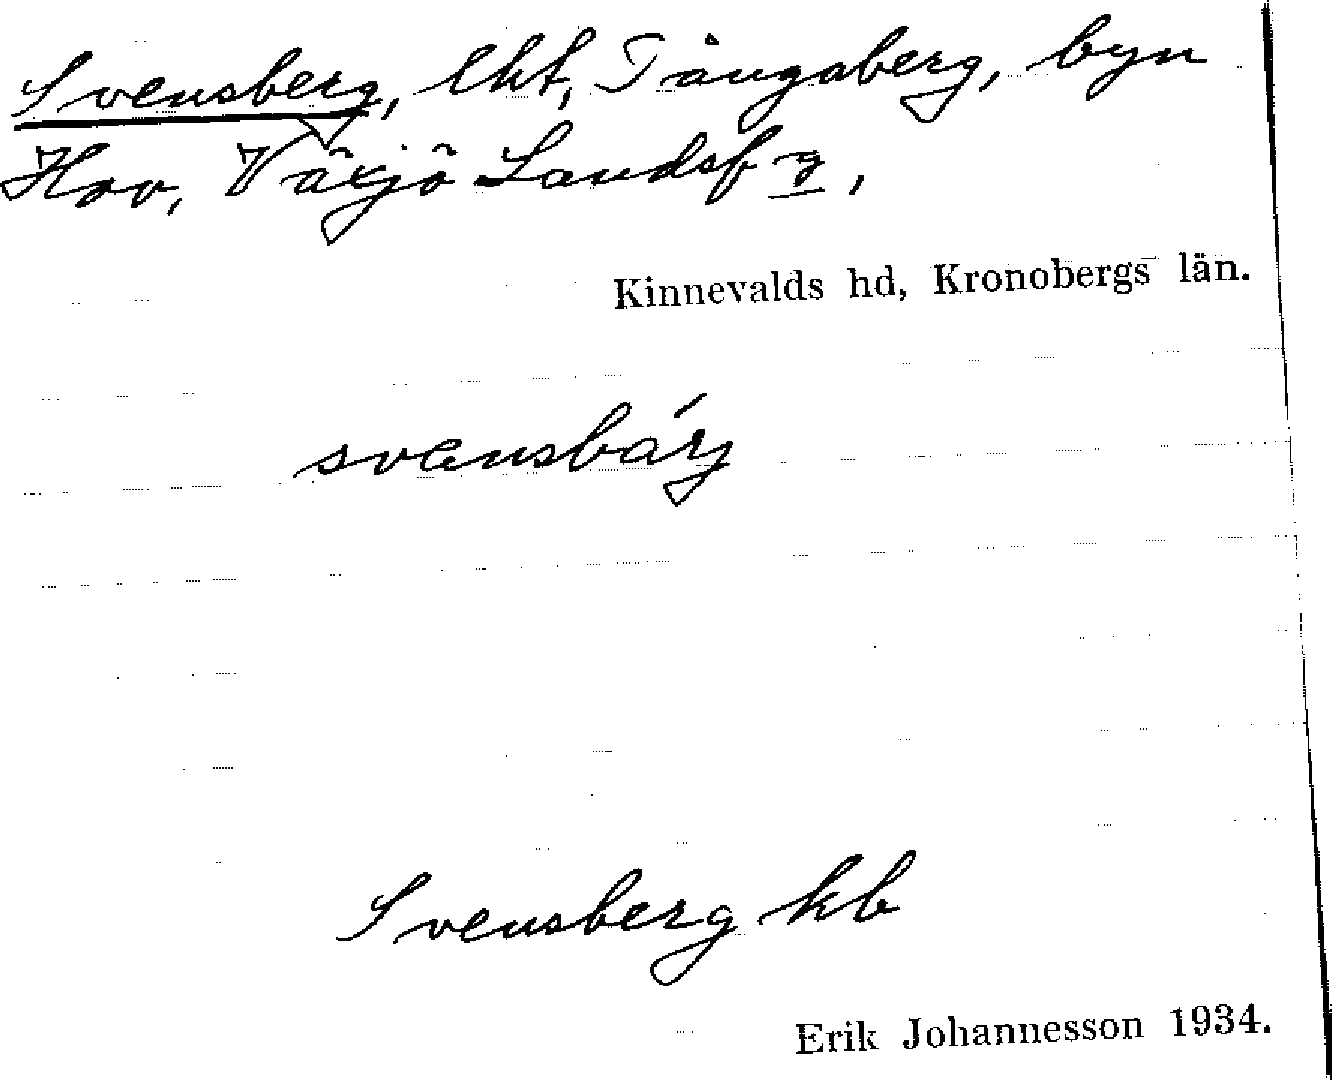 Svensberg, lht, Tångaberg, byn
Hov, Växjö Landsf g,
Kinnevalds hd, Kronobergs län.
svensbárj
Svensberg kb
Erik Johannesson 1934.